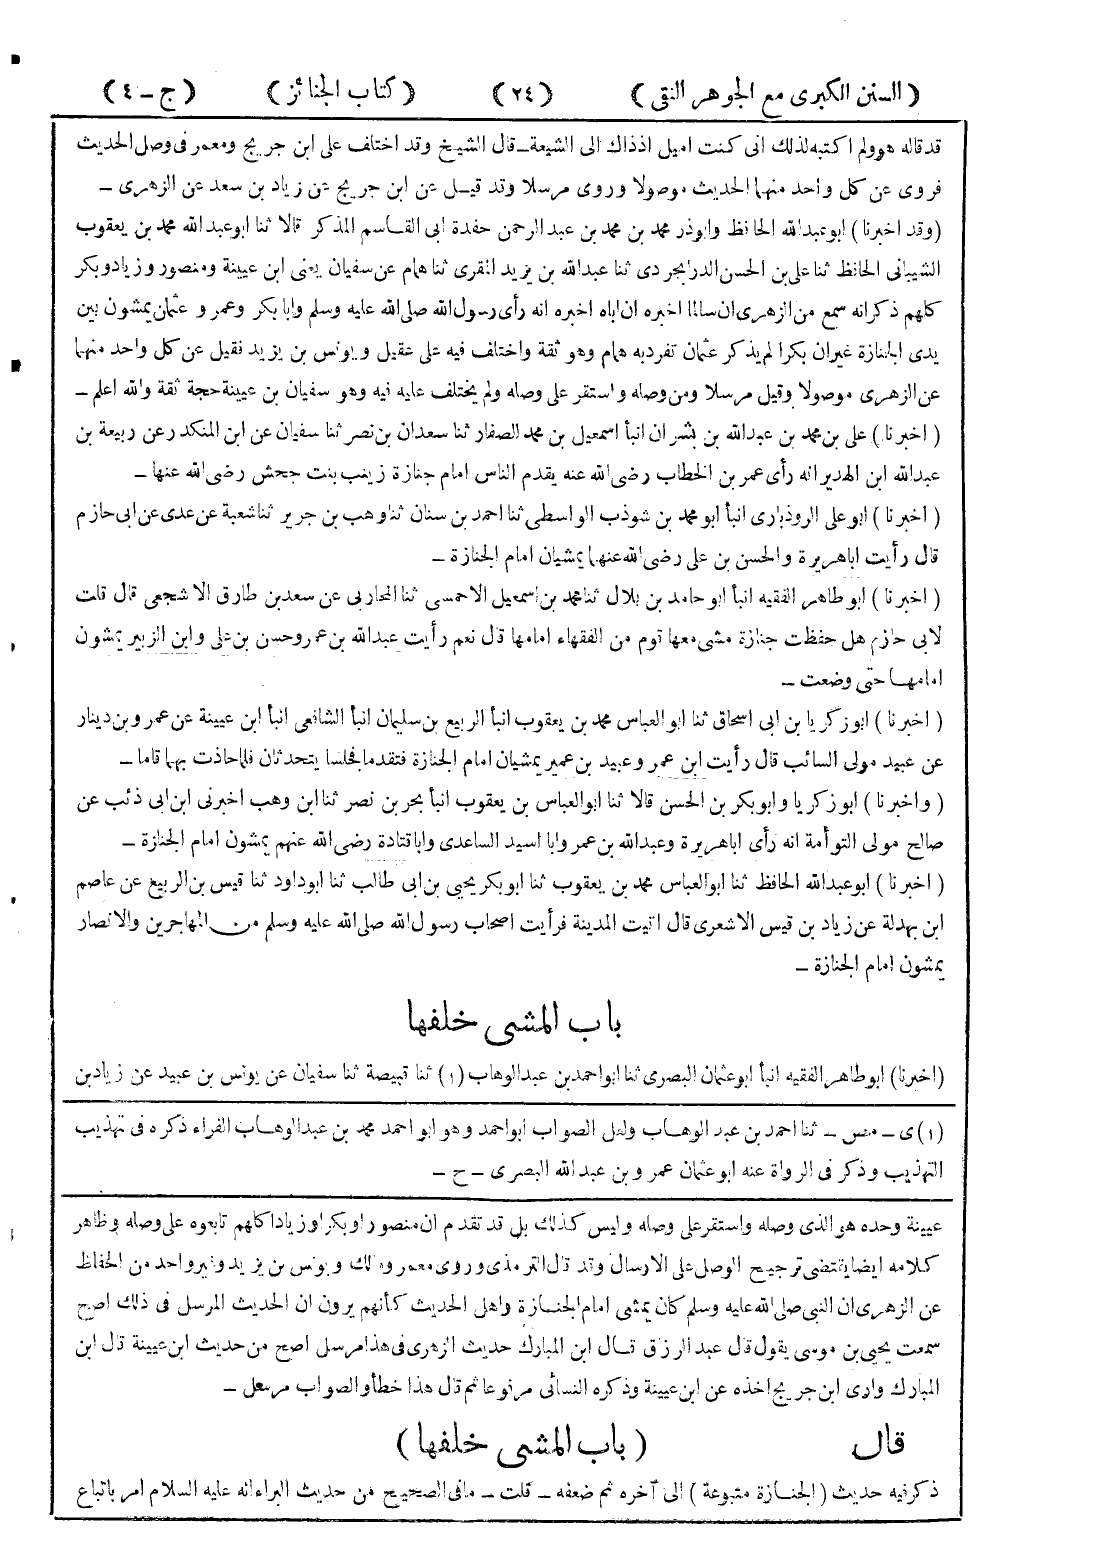 ( السنن الكبرى مع الجوهر النقى ) (٢٤) ( كتاب الجنائز ) ( ج – ٤ )
قد قاله هو ولم اكتبه لذلك انى كنت اميل اذ ذاك الى الشيعة – قال الشيخ وقد اختلف على ابن جريج ومعمر فى وصل الحديث
فروى عن كل واحد منهما الحديث موصولا وروى مرسلا وقد قيل عن ابن جريج عن زياد بن سعد عن الزهرى –
(وقد اخبرنا) ابو عبد الله الحافظ وابوذر محمد بن محمد بن عبد الرحمن حفدة ابى القاسم المذكر قالا ثنا ابو عبد الله محمد بن يعقوب
الشيبانى الحافظ ثنا على بن الحسن الدرابجردى ثنا عبد الله بن يزيد المقرى ثنا همام عن سفيان يعنى ابن عيينة ومنصور وزياد وبكر
كلهم ذكر انه سمع من الزهرى ان سالما اخبره ان اباه اخبره انه رأى رسول الله صلى الله عليه وسلم وابا بكر وعمر و عثمان يمشون بين
يدى الجنازة غير ان بكرا لم يذكر عثمان تفرد به همام وهو ثقة واختلف فيه على عقيل ويونس بن يزيد فقيل عن كل واحد منهما
عن الزهرى موصولا وقيل مرسلا ومن وصله واستقر على وصله ولم يختلف عليه فيه وهو سفيان بن عيينة حجة ثقة والله اعلم –
( اخبرنا ) على بن محمد بن عبد الله بن بشران انبأ اسمعيل بن محمد الصفار ثنا سعدان بن نصر ثنا سفيان عن ابن المنكدر عن ربيعة بن
عبد الله ابن الهدير انه رأى عمر بن الخطاب رضى الله عنه يقدم الناس امام جنازة زينب بنت جحش رضى الله عنها –
( اخبرنا ) ابو على الروذبارى انبأ ابو محمد بن شوذب الواسطى ثنا احمد بن سنان ثنا وهب بن جرير ثنا شعبة عن عدى عن ابى حازم
قال رأيت اباهريرة والحسن بن على رضى الله عنهما يمشيان امام الجنازة –
( اخبرنا ) ابو طاهر الفقيه انبأ ابو حامد بن بلال ثنا محمد بن اسمعيل الاحمسى ثنا المحاربى عن سعد بن طارق الاشجعى قال قلت
لابى حازم هل حفظت جنازة مشى معها قوم من الفقهاء امامها قال نعم رأيت عبد الله بن عمر وحسن بن على وابن الزبير يمشون
امامها حتى وضعت –
( اخبرنا ) ابو زكريا بن ابى اسحاق ثنا ابو العباس محمد بن يعقوب انبأ الربيع بن سليمان انبأ الشافعى انبأ ابن عيينة عن عمرو بن دينار
عن عبيد مولى السائب قال رأيت ابن عمر وعبيد بن عمير يمشيان امام الجنازة فتقدما فجلسا يتحدثان فلما حاذت بهما قاما –
( واخبرنا ) ابو زكريا وابو بكر بن الحسن قالا ثنا ابو العباس بن يعقوب انبأ بحر بن نصر ثنا ابن وهب اخبرنى ابن ابى ذئب عن
صالح مولى التوأمة انه رأى اباهريرة وعبد الله بن عمر وابا اسيد الساعدى واباقتادة رضى الله عنهم يمشون امام الجنازة –
( اخبرنا ) ابو عبد الله الحافظ ثنا ابو العباس محمد بن يعقوب ثنا ابو بكر يحيى بن ابى طالب ثنا ابو داود ثنا قيس بن الربيع عن عاصم
ابن بهدلة عن زياد بن قيس الاشعرى قال اتيت المدينة فرأيت اصحاب رسول الله صلى الله عليه وسلم من المهاجرين والانصار
يمشون امام الجنازة –
باب المشى خلفها
(اخبرنا) ابو طاهر الفقيه انبأ ابو عثمان البصرى ثنا ابو احمد بن عبد الوهاب (١) ثنا قبيصة ثنا سفيان عن يونس بن عبيد عن زياد بن
(١) ى – مص – ثنا احمد بن عبد الوهاب ولعل الصواب ابو احمد وهو ابو احمد محمد بن عبد الوهاب الفراء ذكره فى تهذيب
التهذيب وذكر فى الرواة عنه ابو عثمان عمرو بن عبد الله البصرى – ح –
عيينة وحده هو الذى وصله واستقر على وصله وليس كذلك بل قد تقدم ان منصورا وبكرا وزيادا كلهم تابعوه على وصله وظاهر
كلامه ايضا يقتضى ترجيح الوصل على الارسال وقد قال الترمذى وروى معمر ومالك ويونس بن يزيد وغير واحد من الحفاظ
عن الزهرى ان النبى صلى الله عليه وسلم كان يمشى امام الجنازة واهل الحديث كأنهم يرون ان الحديث المرسل فى ذلك اصح
سمعت يحيى بن موسى يقول قال عبد الرزاق قال ابن المبارك حديث الزهرى فى هذا مرسل اصح من حديث ابن عيينة قال ابن
المبارك وارى ابن جريج اخذه عن ابن عيينة وذكره النسائى مرفوعا ثم قال هذا خطأ والصواب مرسل –
قال ( باب المشى خلفها )
ذكر فيه حديث ( الجنازة متبوعة ) الى آخره ثم ضعفه – قلت – ما فى الصحيح من حديث البراء انه عليه السلام امر باتباع